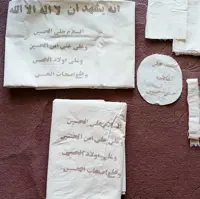 انه يشهد ان لا اله الا الله
السلام على الحسين
وعلى علي ابن الحسين
وعلى اولاد الحسين
وعلى اصحاب الحسين
السلام على الحسين
وعلى علي ابن الحسين
وعلى اولاد الحسين
وعلى اصحاب الحسين